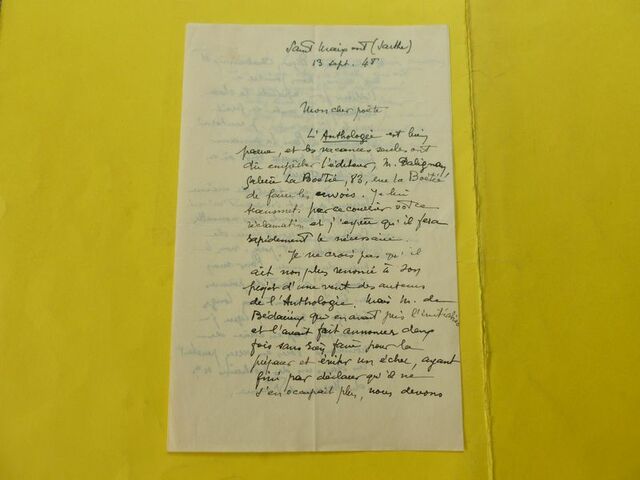 Saint Maixent (Sarthe)
13 sept. 48
Mon cher poète
L'Anthologie est bien
parue, et les vacances seules ont
dû empêcher l'éditeur, M. Dalignay
Galerie La Boétie, 83, rue La Boétie
de faire les envois. Je lui
transmet par ce courrier votre
réclamation et j'espère qu'il fera
rapidement le nécessaire.
Je ne crois pas qu'il
ait non plus renoncé à son
projet d'une vente des auteurs
de l'Anthologie. Mais M. de
qui en avait pris l'initiative
et l'avait fait annoncer deux
fois sans rien faire pour la
préparer et éviter un échec, ayant
fini par déclarer qu'il ne
s'en occupait plus, nous devons